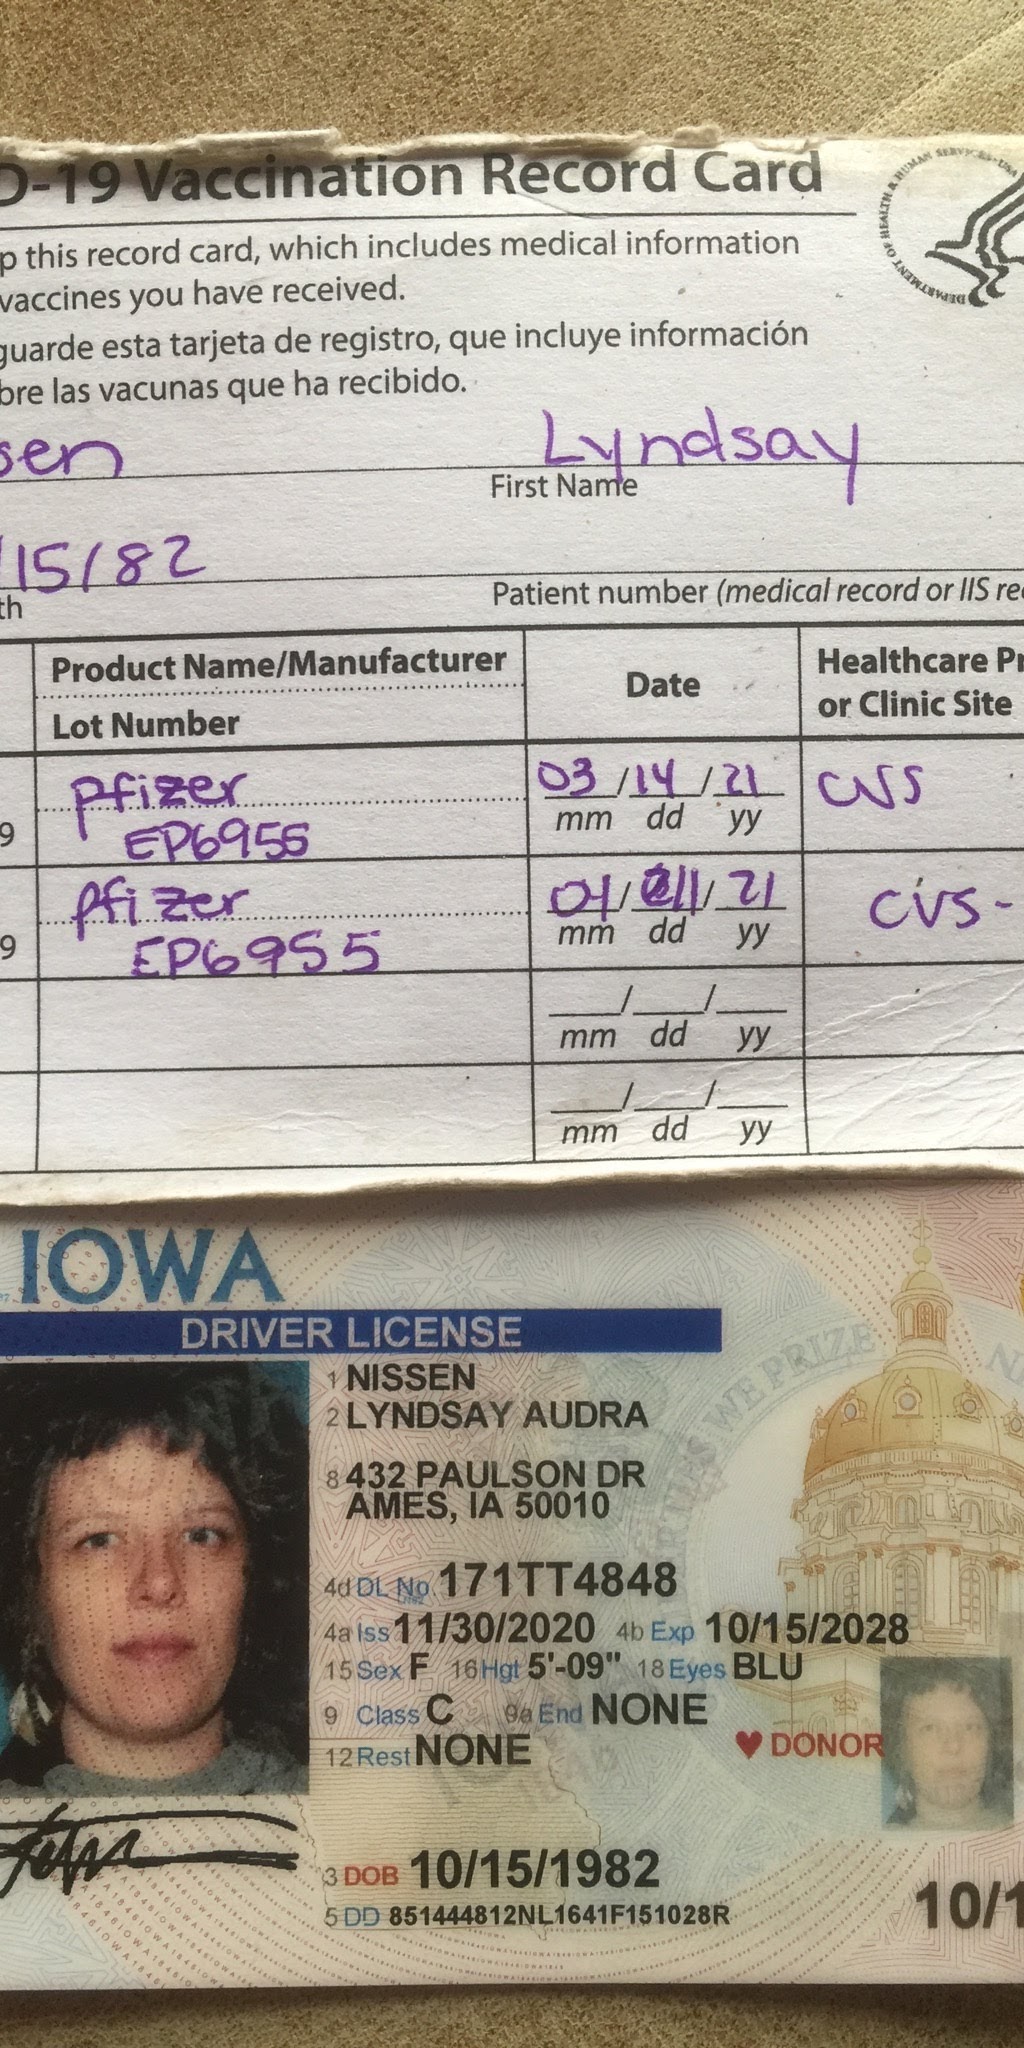 D-19 Vaccination Record Card
DEPARTMENT OF HEALTH & HUMAN SERVICES·USA
p this record card, which includes medical information
vaccines you have received.
guarde esta tarjeta de registro, que incluye información
bre las vacunas que ha recibido.
sen Lyndsay
First Name
/15/82
th Patient number (medical record or IIS re
Product Name/Manufacturer
Lot Number
Date
Healthcare Pr
or Clinic Site
pfizer 03/14/21 CVS
9 EP6955 mm dd yy
pfizer 21 CVS-
9 EP6955 mm dd yy
__/__/__
mm dd yy
__/__/__
mm dd yy
IOWA
DRIVER LICENSE
1 NISSEN
2 LYNDSAY AUDRA
8 432 PAULSON DR
AMES, IA 50010
4d DL No. 171TT4848
4a Iss 11/30/2020 4b Exp 10/15/2028
15 Sex F 16 Hgt 5'-09" 18 Eyes BLU
9 Class C 9a End NONE
12 Rest NONE
DONOR
3 DOB 10/15/1982
5 DD 851444812NL1641F151028R
10/1
WE PRIZE